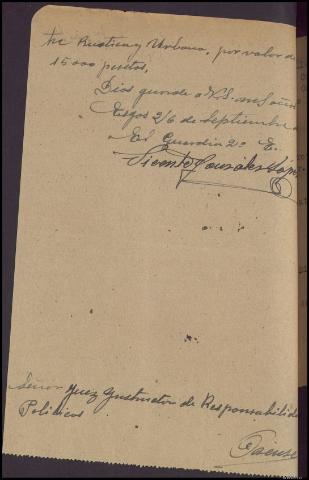 tre Rustica y Urbana, por valor de
15000 pesetas.
Dios guarde a V.S. m años
26 de Septiembre
El Guardia 2º E.
Vicente González López
Señor Juez Instructor de Responsabilida
Politicas